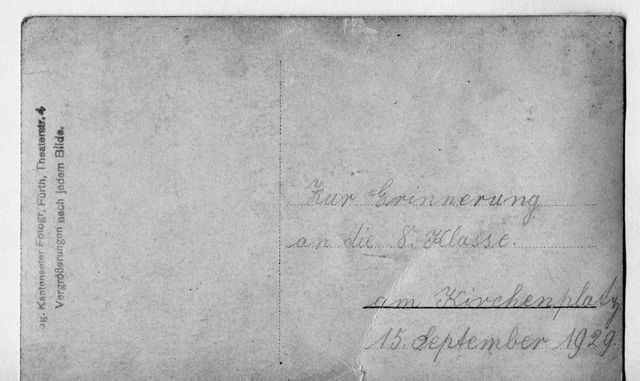 og. Kantenseter Fotogr, Fürth, Theaterstr. 4
Vergrößerungen nach jedem Bilde.
Zur Erinnerung
an die 8. Klasse.
am Kirchenplatz
15. September 1929.